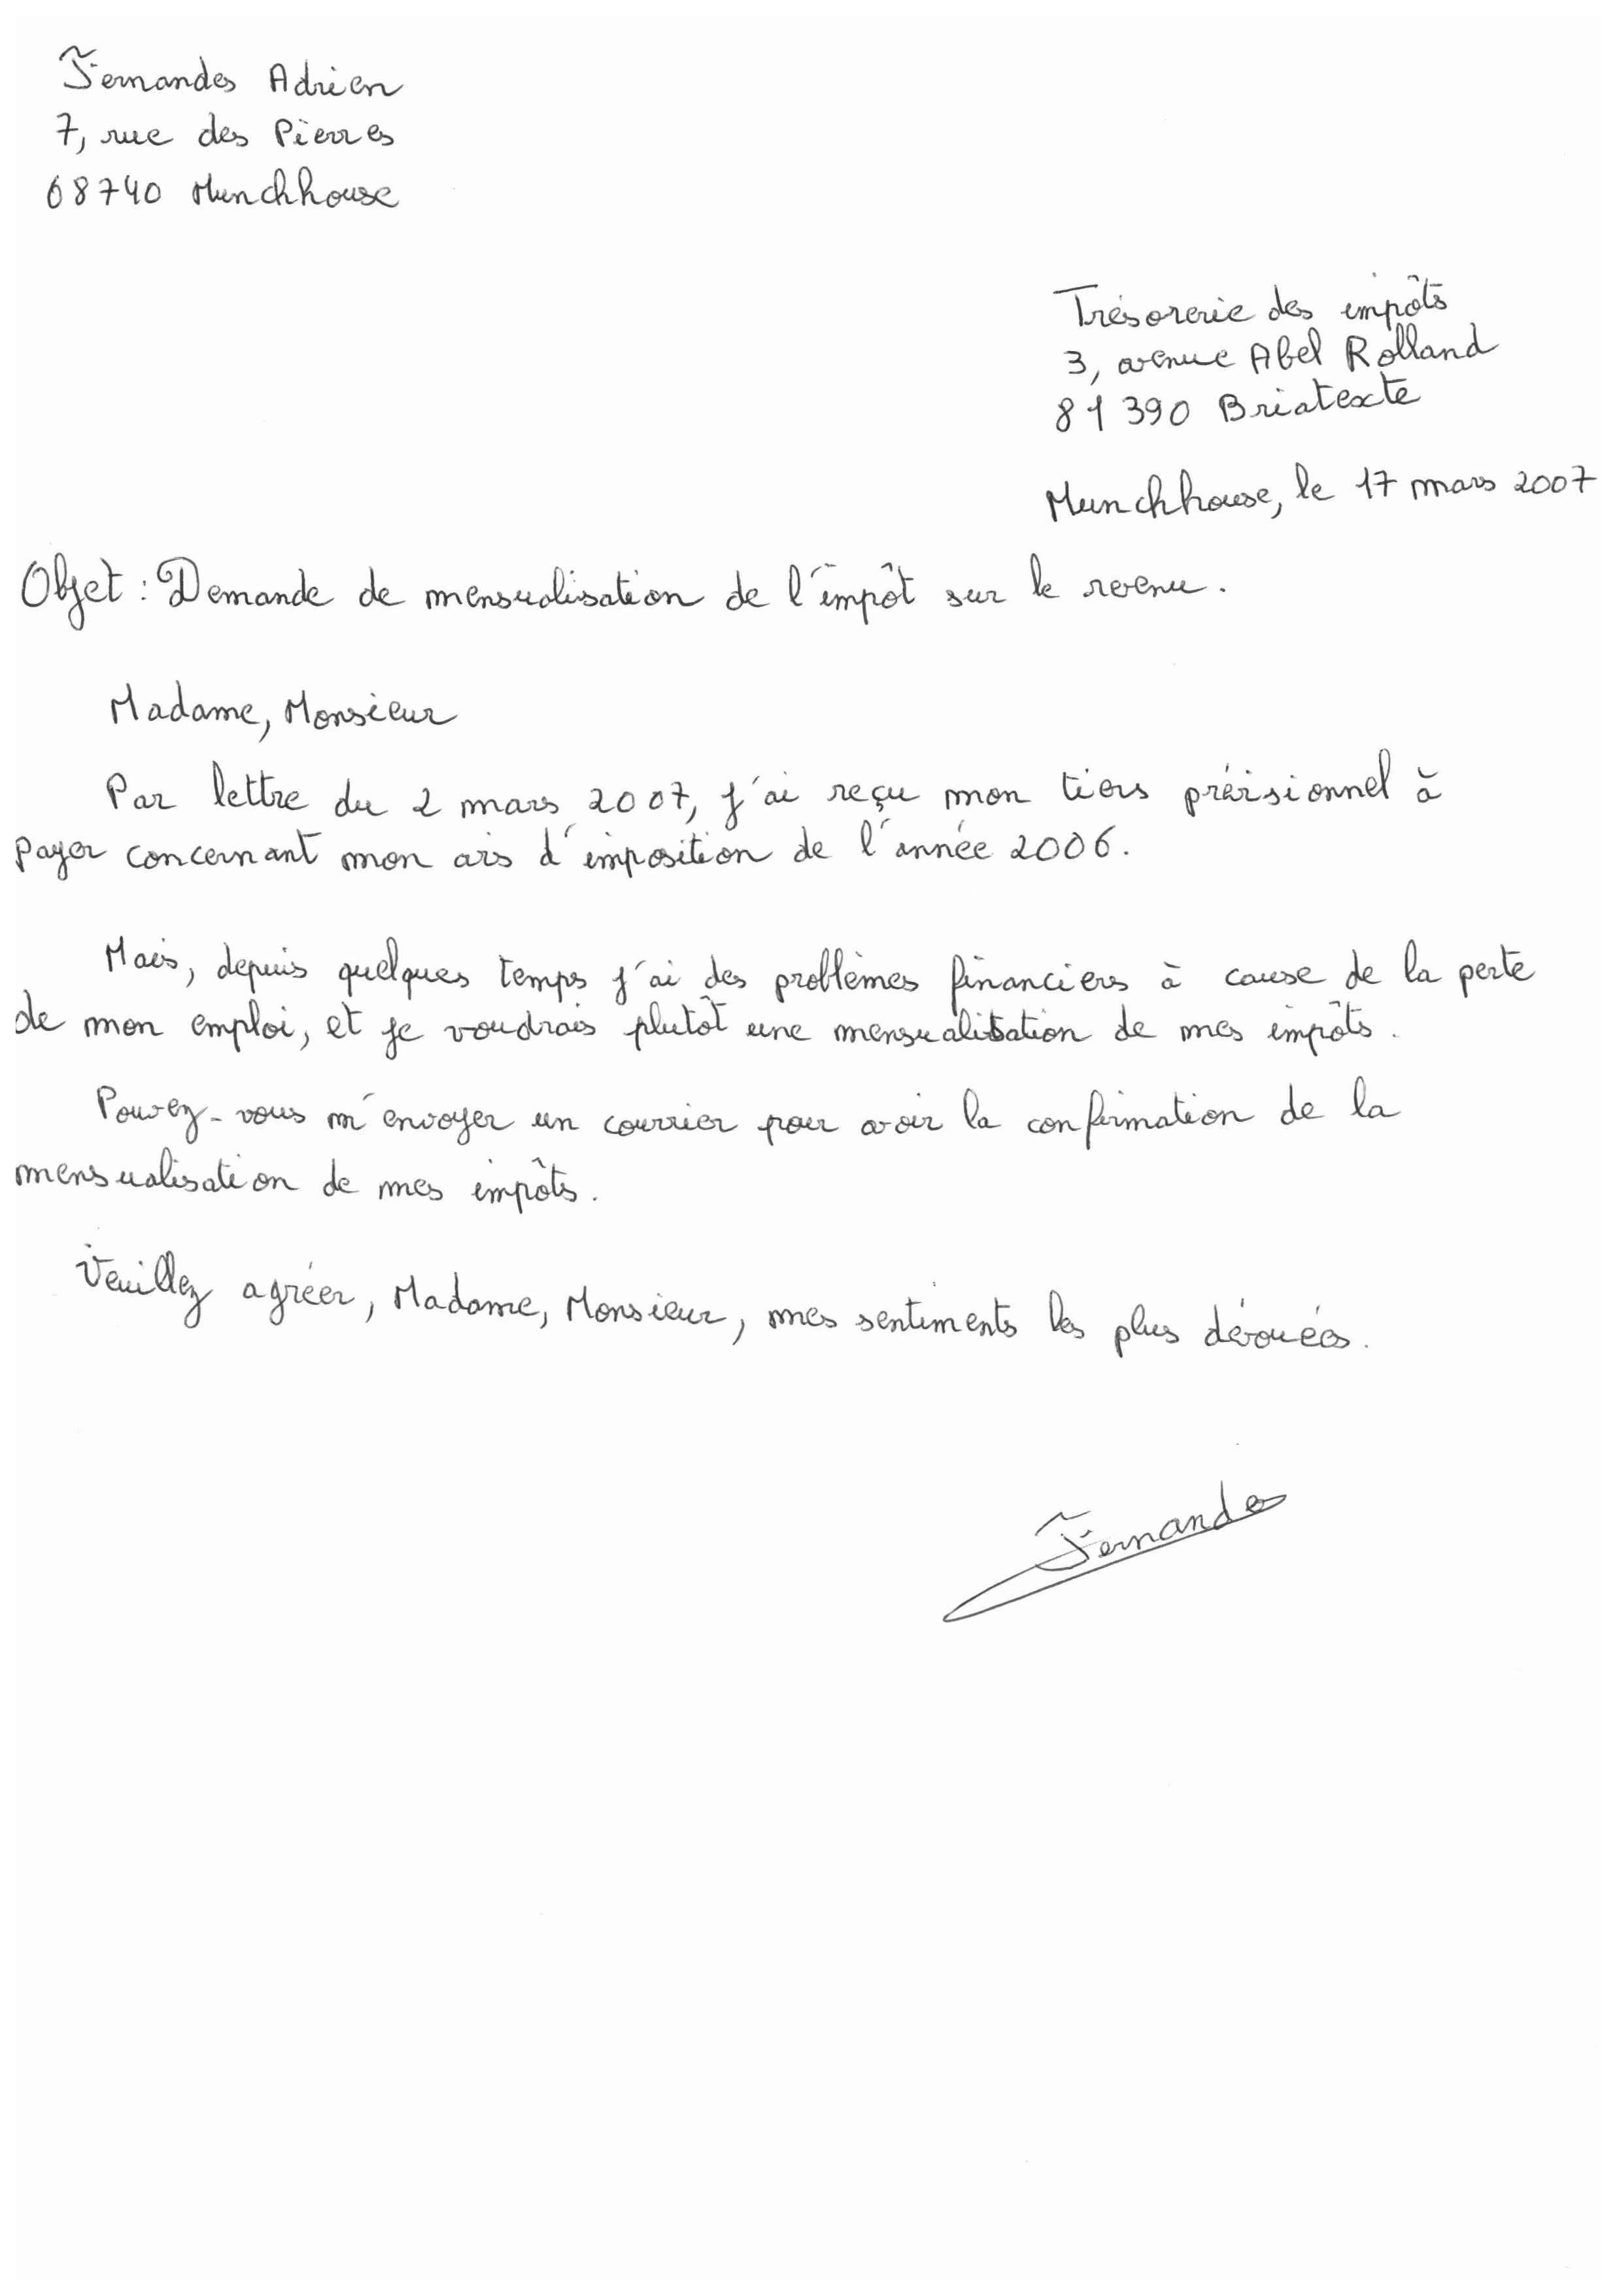 Fernandes Adrien
7, rue des Pierres
68740 Munchhouse
Trésorerie des impôts
3, avenue Abel Rolland
81390 Briatexte
Munchhouse, le 17 mars 2007
Objet : Demande de mensualisation de l'impôt sur le revenu.
Madame, Monsieur
Par lettre du 2 mars 2007, j'ai reçu mon tiers prévisionnel à
payer concernant mon avis d'imposition de l'année 2006.
Mais, depuis quelques temps j'ai des problèmes financiers à cause de la perte
de mon emploi, et je voudrais plutôt une mensualisation de mes impôts.
Pouvez-vous m'envoyer un courrier pour avoir la confirmation de la
mensualisation de mes impôts.
Veuillez agréer, Madame, Monsieur, mes sentiments les plus dévoués.
Fernandes